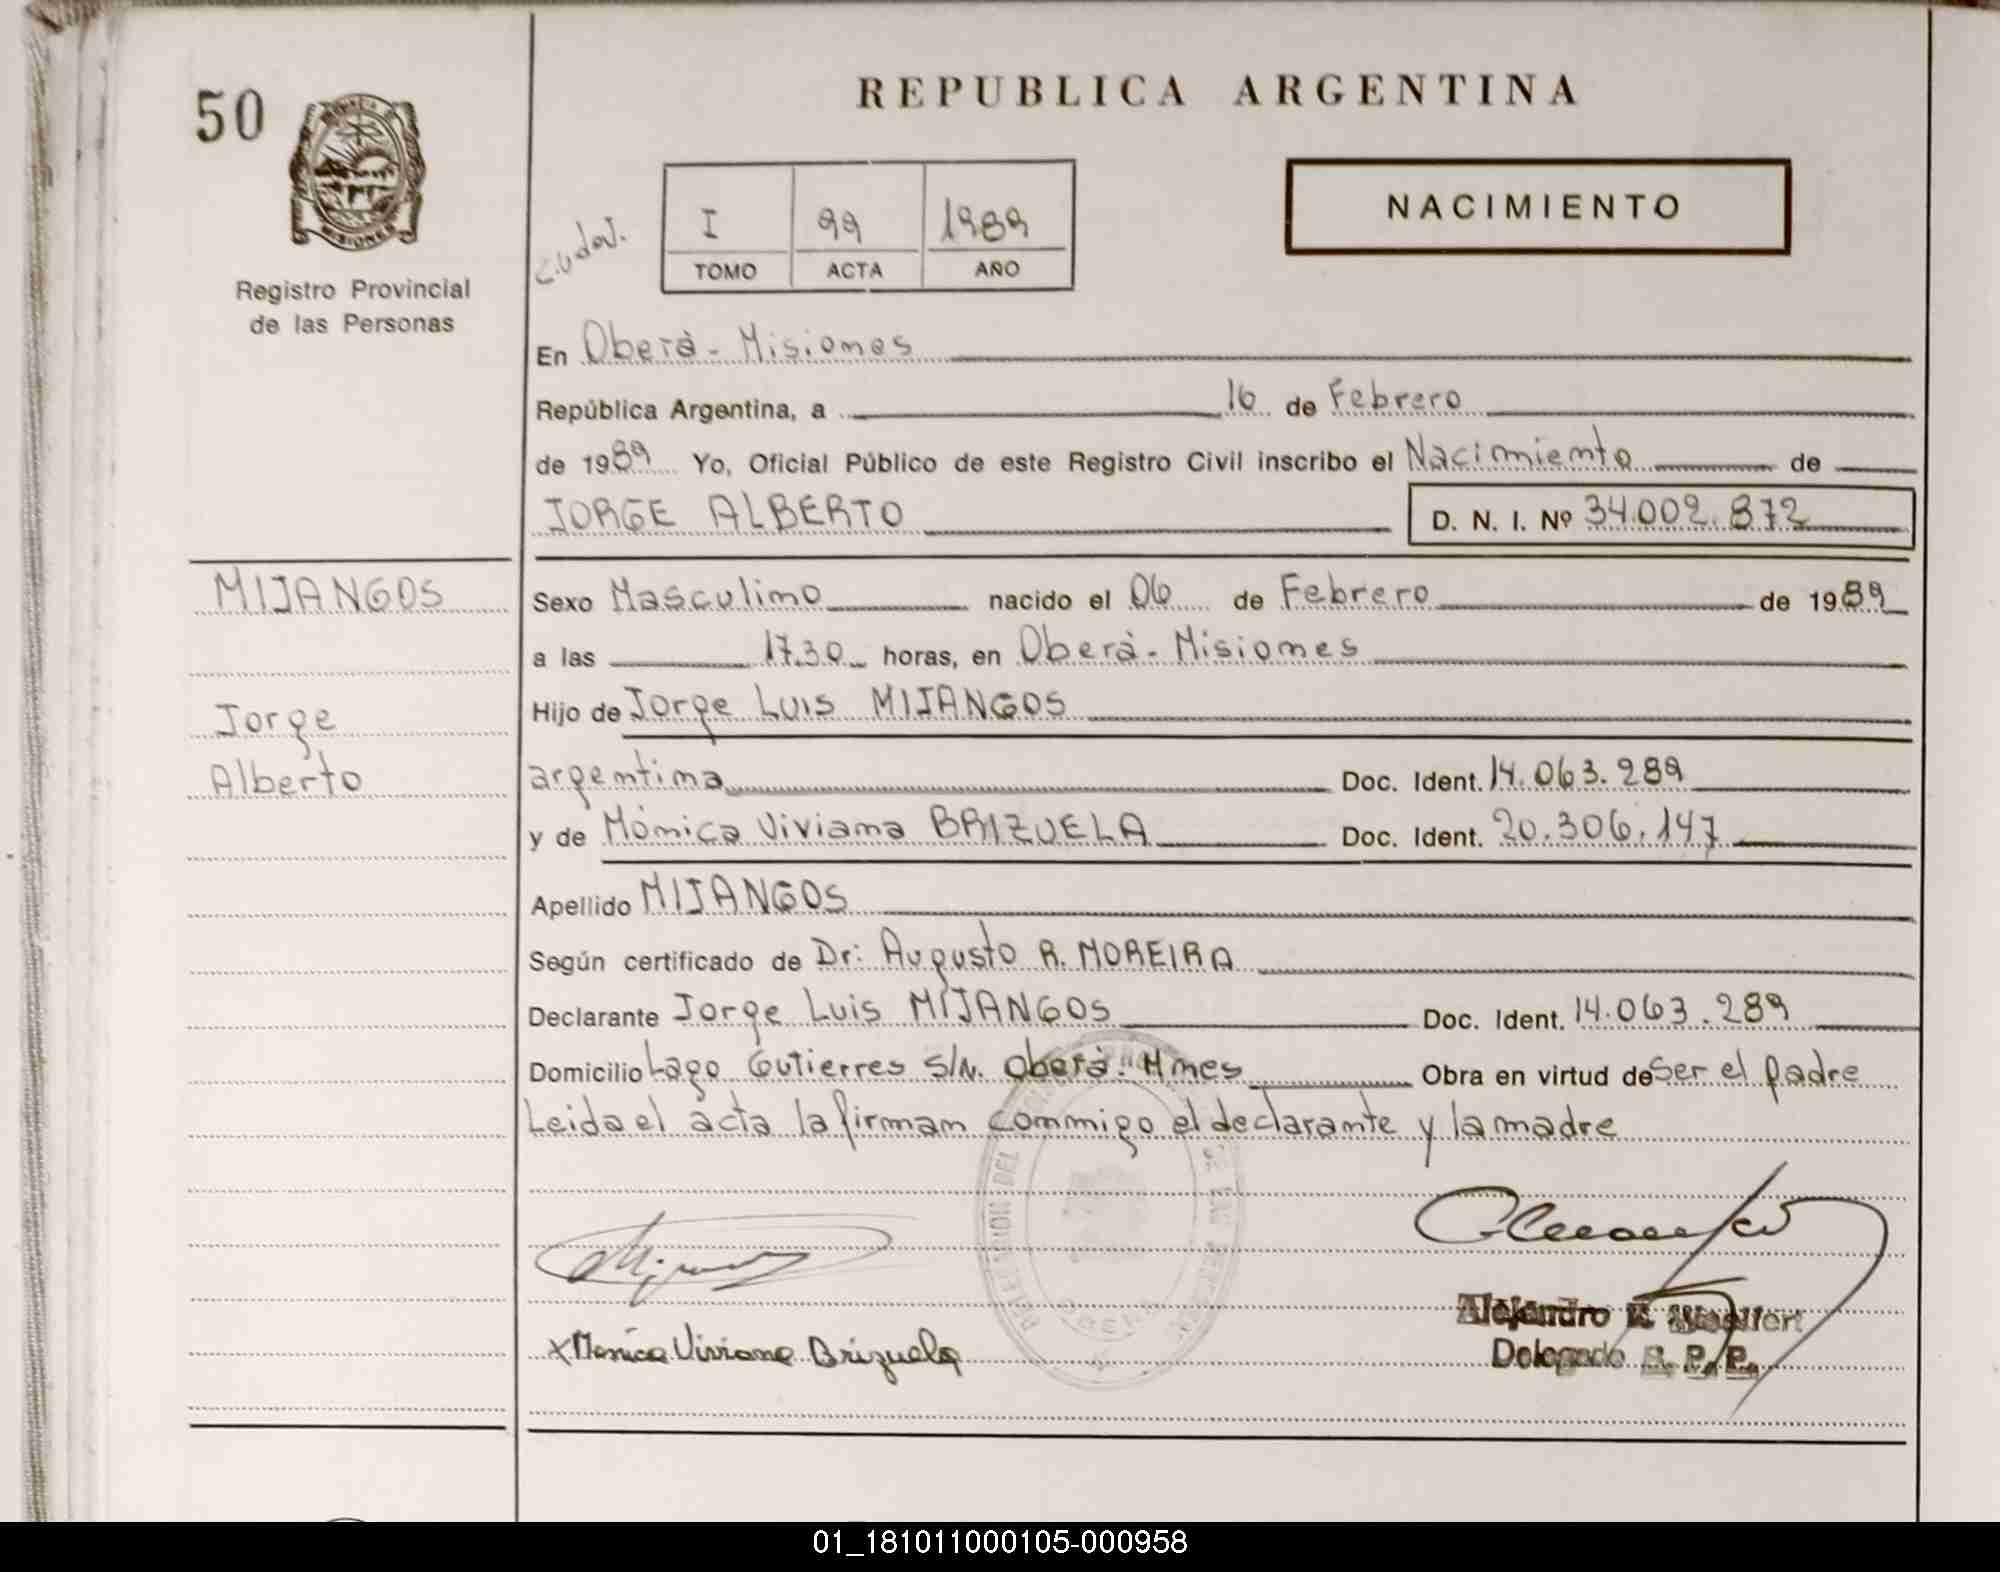 50
REPUBLICA ARGENTINA
NACIMIENTO
I 99 1989
TOMO ACTA AÑO
Registro Provincial
de las Personas
MISIONES
En Oberà - Misiones
República Argentina, a 16 de Febrero
de 1989 Yo, Oficial Público de este Registro Civil inscribo el Nacimiento de
JORGE ALBERTO D. N. I. Nº 34.002.872
MIJANGOS
Jorge
Alberto
Sexo Masculino nacido el 06 de Febrero de 1989
a las 17.30 horas, en Oberà - Misiones
Hijo de Jorge Luis MIJANGOS
argentina Doc. Ident. 14.063.289
y de Mónica Viviana BRIZUELA Doc. Ident. 20.306.147
Apellido MIJANGOS
Según certificado de Dr: Augusto R. MOREIRA
Declarante Jorge Luis MIJANGOS Doc. Ident. 14.063.289
Domicilio Lago Gutierres S/N. Oberà - Mnes Obra en virtud de Ser el padre
Leida el acta la firman conmigo el declarante y la madre
x Monica Viviana Brizuela
Alejandro
Delegado R. P. P.
01_181011000105-000958